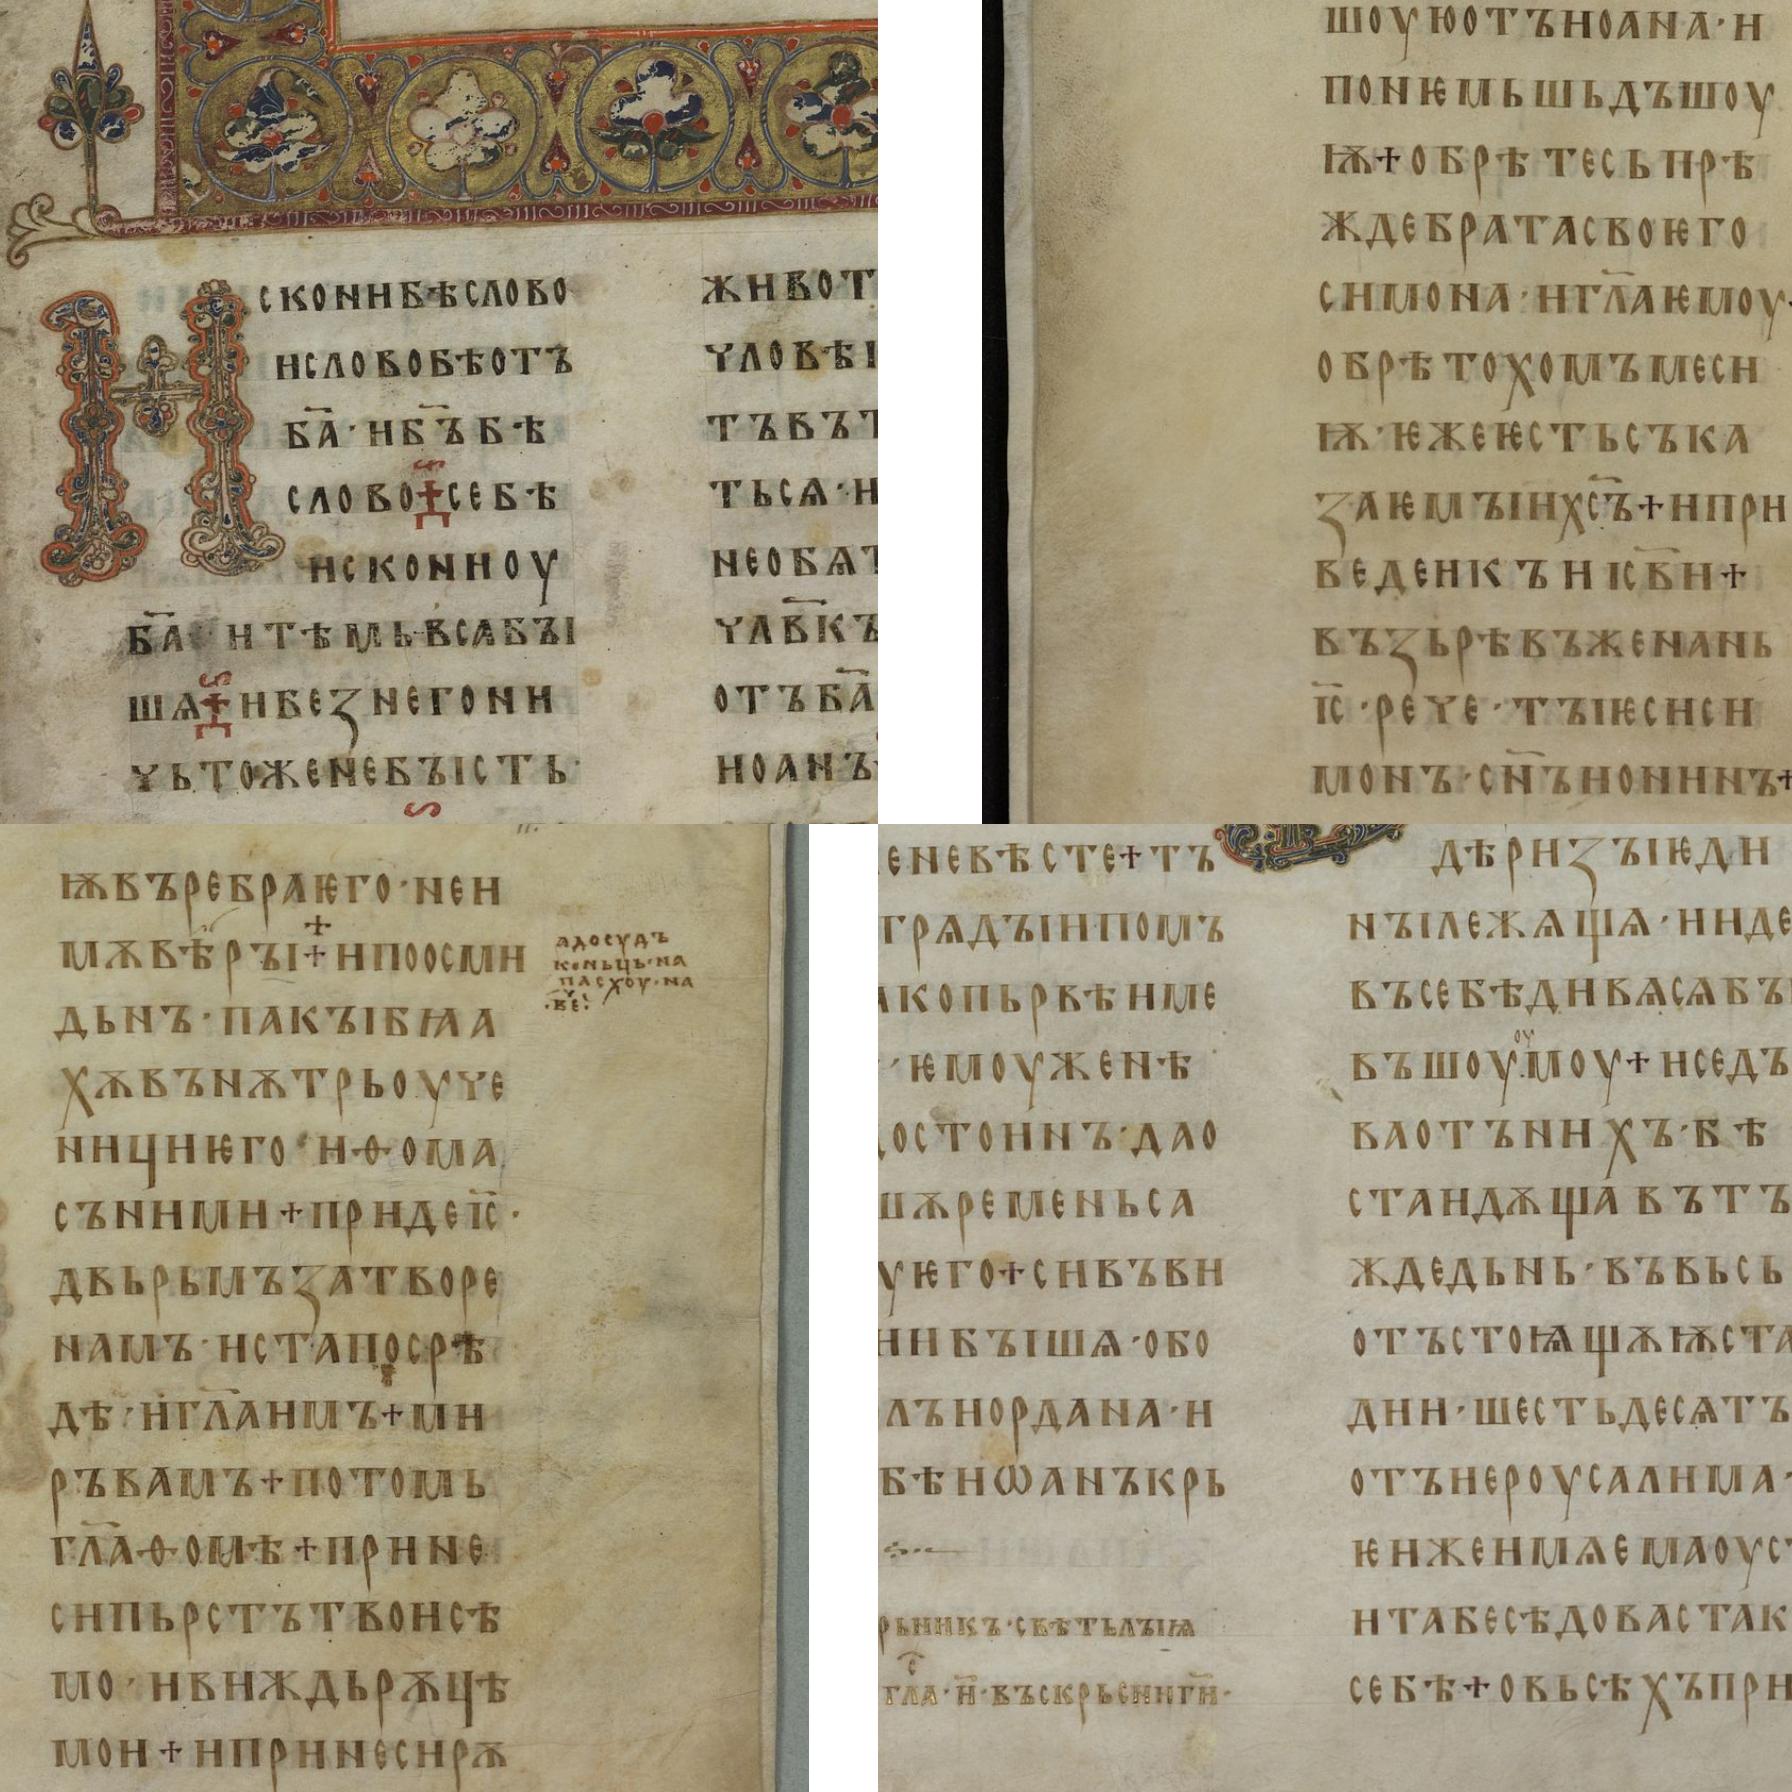 ИСКОНИБѢСЛОВО
ИСЛОВОБѢОТЪ
БА҃·ИБ҃ЪБѢ
СЛОВО+СЕБѢ
ИСКОНИОУ
БА҃·ИТѢМЬВСѦБЪІ
ШѦ+ИБЕꙀНЕГОНИ
ЧЬТОЖЕНЕБЪІСТЬ·
ЖИВОТ
ЧЛОВѢ
ТЪВЪТ
ТЬСѦ·И
НЕОБѦТ
ЧЛВ҃КЪ
ОТЪБА҃
ИОАНЪ
ШОУЮОТЪИОАНА·И
ПОНѤМЬШЬДЪШОУ
Ѭ+ОБРѢТЕСЬПРѢ
ЖДЕБРАТАСВОѤГО
СИМОНА·ИГЛ҃АѤМОУ·
ОБРѢТОХОМЪМЕСИ
Ѭ·ѤЖЕѤСТЬСЪКА
ꙀАѤМЪІИХС҃Ъ+ИПРИ
ВЕДЕИКЪИІСВ҃И+
ВЪꙀЬРѢВЪЖЕНАНЬ
ІС҃·РЕЧЕ·ТЪІѤСИСИ
МОНЪ·СН҃ЪИОНИНЪ+
ѬВЪРЕБРАѤГО·НЕИ
МѪВѢРЪІ+ИПООСМИ
ДЬНЪ·ПАКЪІБꙖА
ХѪВЪНѪТРЬОУЧЕ
НИЦИѤГО·ИѲОМА
СЪНИМИ+ПРИДЕІС҃·
ДВЬРЬМЪꙀАТВОРЕ
НАМЪ·ИСТАПОСРѢ
ДѢ·ИГЛ҃АИМЪ+МИ
РЪВАМЪ+ПОТОМЬ
ГЛ҃АѲОМѢ+ПРИНЕ
СИПЬРСТЪТВОИСѢ
МО·ИВИЖДЬРѪЦѢ
МОИ+ИПРИНЕСИРѪ
АДОСУДЪ
КОНЬЦЬ·НА
ПАСХОУ·НА
·ВЕЧ:
ЕНЕВѢСТЕ+ТЪ
ГРѦДЪІИПОМЪ
АКОПЬРВѢИМЕ
·ѤМОУЖЕНѢ
ДОСТОИНЪ·ДАО
ШѪРЕМЕНЬСА
УѤГО+СИВЪВИ
НИБЪІШѦ·ОБО
ЛЪИОРДАНА·И
БѢИѠАНЪКРЬ
РЬНИКЪ·СВѢТЬЛЪІѨ
ГЛА·Н҃·ВЪСКРЬСНИГН҃·
ДѢРИꙀЪІѤДИ
НЪІЛЕЖѦЩѦ·ИИДЕ
ВЪСЕБѢДИВѦСѦБЪІ
ВЪШОУМОУ+ИСЕДЪ
ОУ
ВАОТЪНИХЪ·БѢ
СТАИДѪЩАВЪТЪ
ЖДЕДЬНЬ·ВЪВЬСЬ
ОТЪСТОѨЩѪѬСТА
ДИИ·ШЕСТЬДЕСѦТЪ
ОТЪИЕРОУСАЛИМА·
ѤИЖЕИМѦЕМАОУС
ИТАБЕСѢДОВАСТАК
СЕБѢ+ОВЬСѢХЪПРИ